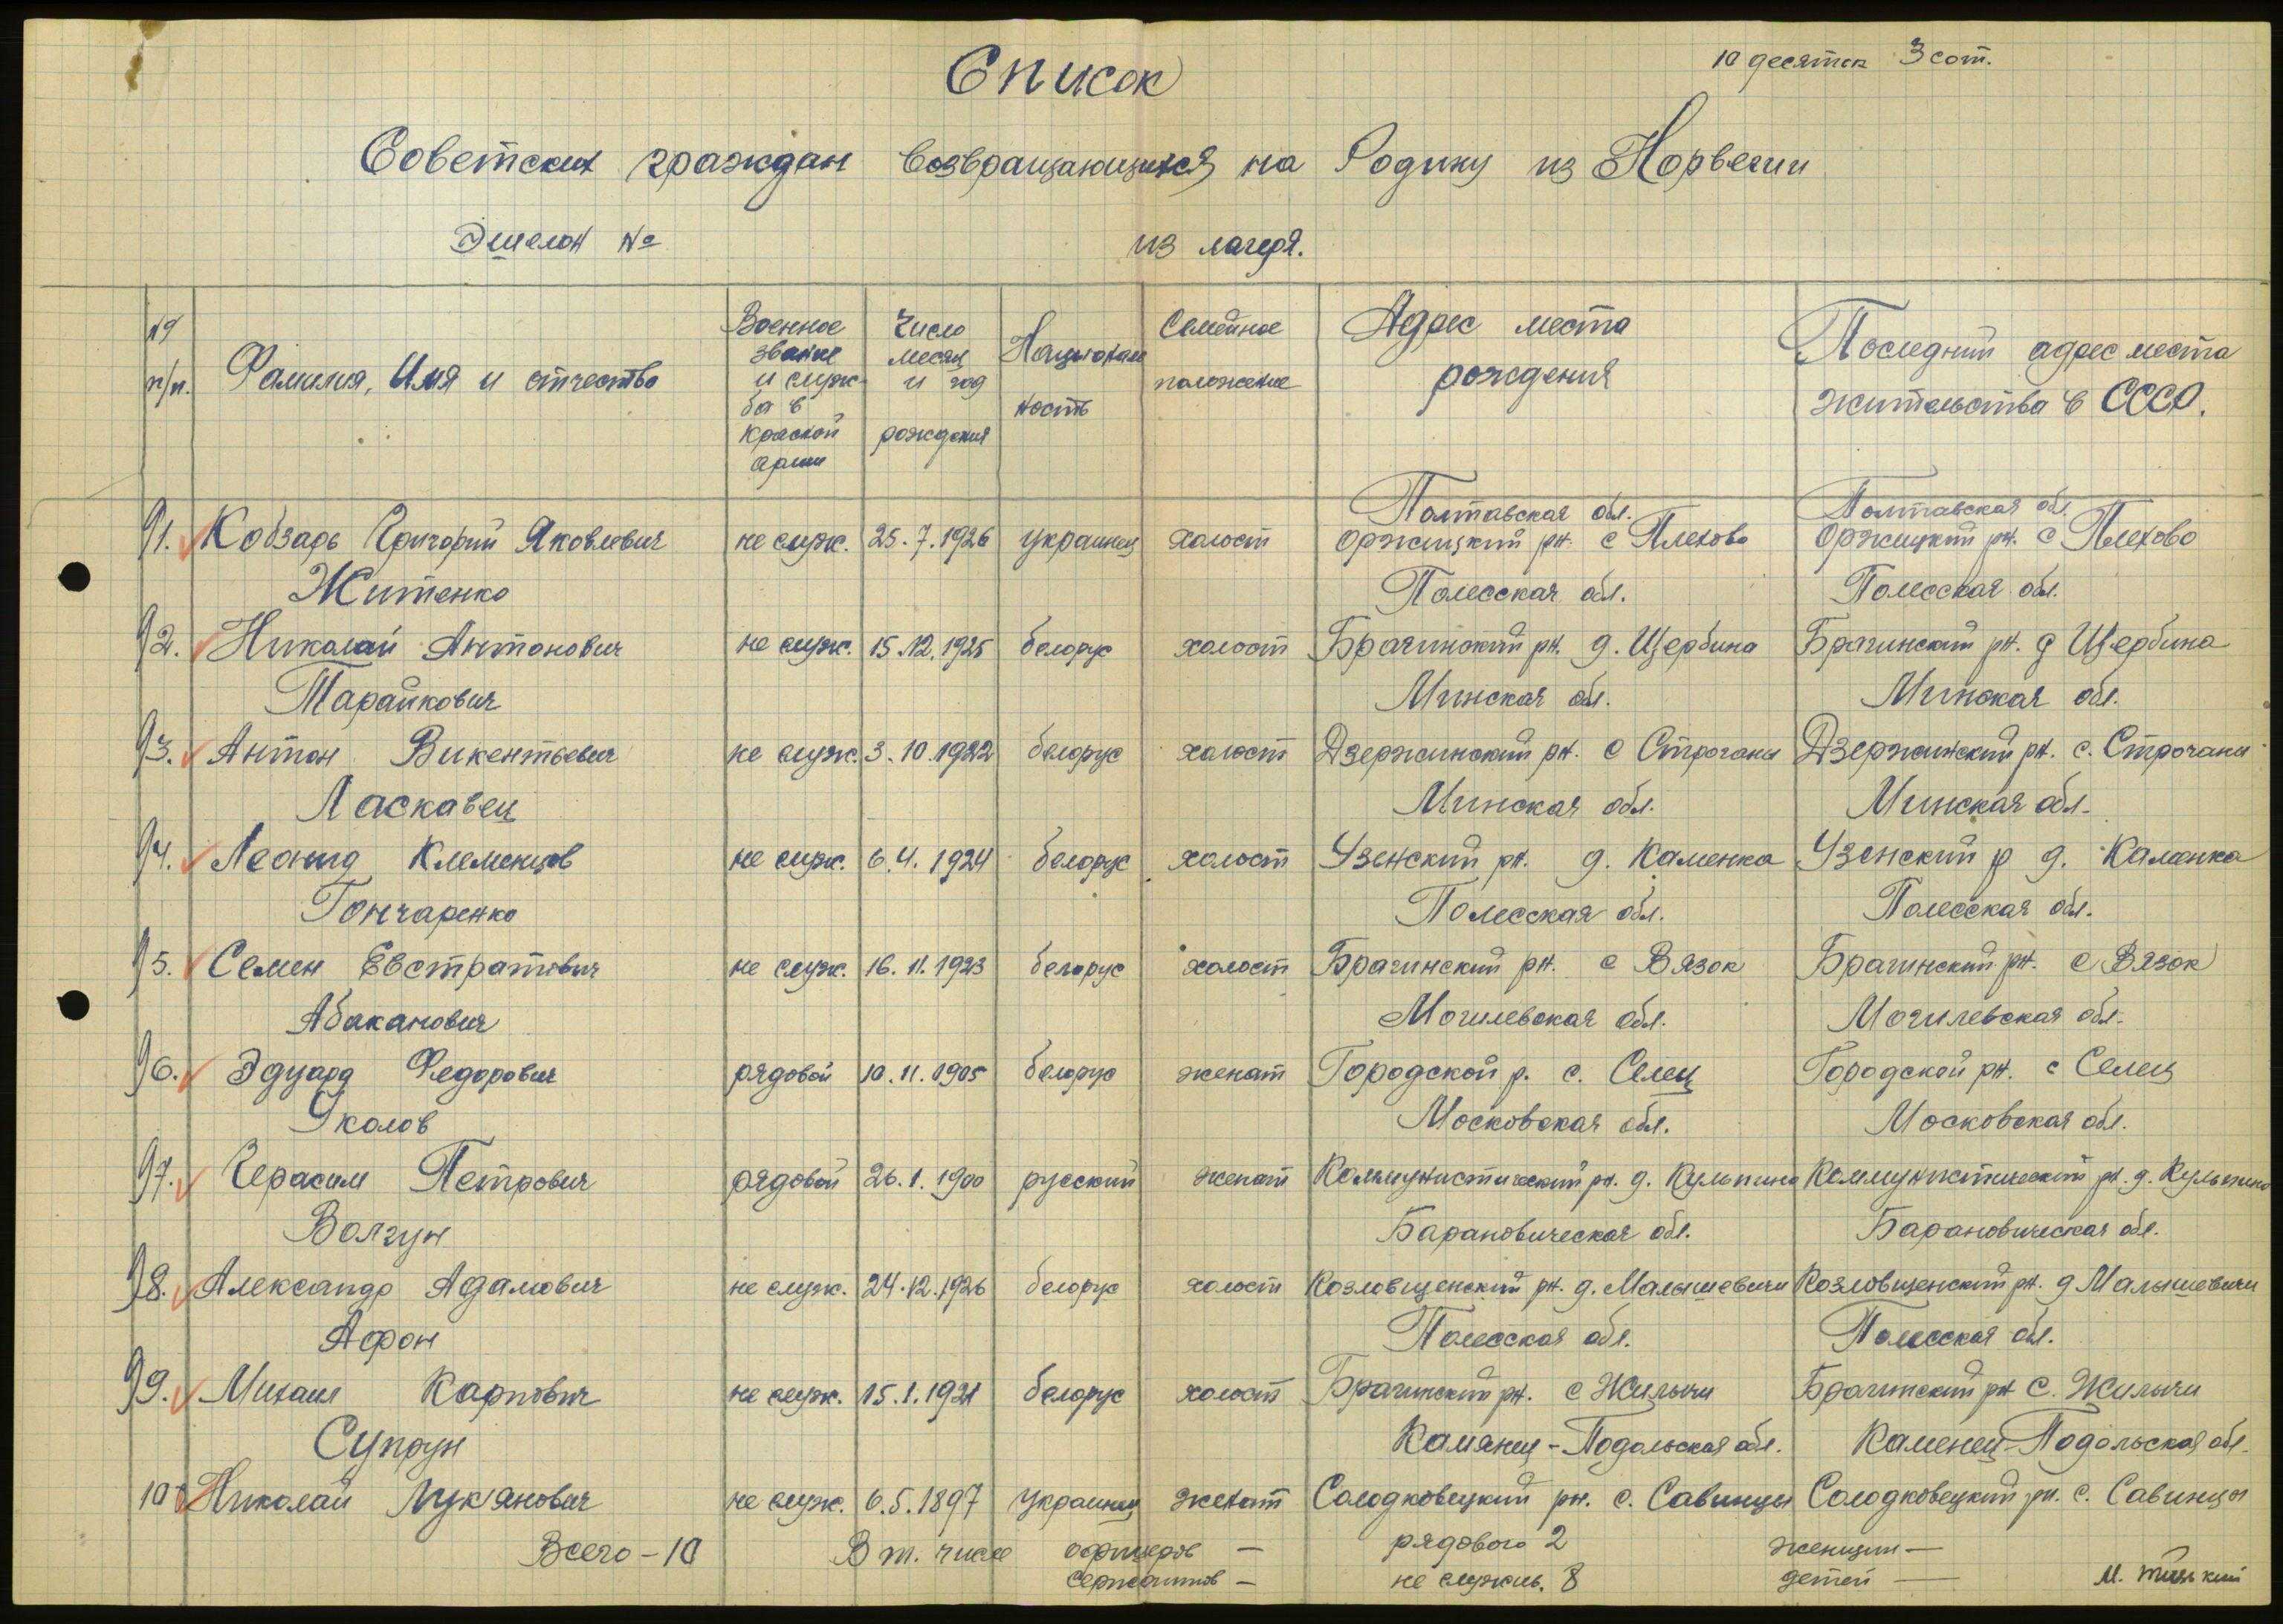 10 десяток 3 сот.
Список
Советских граждан возвращающихся на Родину из Норвегии
Эшелон № из лагеря.
№ п/п. Фамилия, Имя и отчество Военное звание и служба в красной армии Число месяц и год рождения Националность Семейное положение Адрес места рождения Последний адрес места жительства в СССР.
Полтавская обл. Полтавская обл.
91. Кобзарь Григорий Яковлевич не служ. 25.7.1926 украинец холост Оржицкий рн. с Плехово Оржицкий рн. с Плехово
Житенко Полесская обл. Полесская обл.
92. Николай Антонович не служ. 15.12.1925 белорус холост Брагинский рн. д. Щербина Брагинский рн. д Щербина
Тарайкович Минская обл. Минская обл.
93. Антон Викентьевич не служ. 3.10.1922 белорус холост Дзержинский рн. с Строчани Дзержинский рн. с. Строчани
Ласкавец Минская обл. Минская обл.
94. Леонид Клеменцов не служ. 6.4.1924 белорус холост Узенский рн. д. Каменка Узенский р д. Каменка
Гончаренко Полесская обл. Полесская обл.
95. Семен Евстратович не служ. 16.11.1923 белорус холост Брагинский рн. с Вязок Брагинский рн. с Вязок
Абаканович Могилевская обл. Могилевская обл.
96. Эдуард Федорович рядовой 10.11.1905 белорус женат Городской р. с. Селец Городской рн. с Селец
Уколов Московская обл. Московская обл.
97. Герасим Петрович рядовой 26.1.1900 русский женат Коммунистический рн. д. Кульпино Коммунистический рн. д. Кульпино
Волгун Барановическая обл. Барановическая обл.
98. Александр Адамович не служ. 24.12.1926 белорус холост Козловщенский рн. д. Малышевичи Козловщенский рн. д Малышевичи
Афон Полесская обл. Полесская обл.
99. Михаил Карпович не служ. 15.1.1921 белорус холост Брагинский рн. с Жиличи Брагинский рн с. Жиличи
Супрун Камянец-Подольская обл. Каменец-Подольская обл.
100 Николай Лук'янович не служ. 6.5.1897 украинец женат Солодковецкий рн. с. Савинцы Солодковецкий рн. с. Савинцы
Всего - 10 В т. числе офицеров — рядового 2 женщин —
сержантов — не служив. 8 детей —